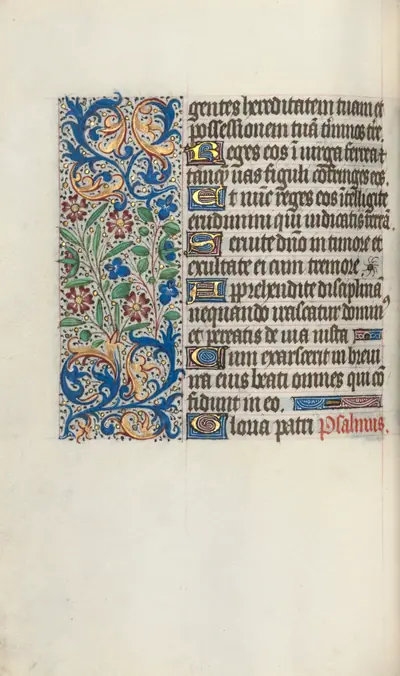 gentes hereditatem tuam et
possessionem tuã tẽminos tẽre.
Reges eos ĩ uirga ferrea ⁊
tanq̃ uas figuli cõfringes eos.
Et nũc reges eos ĩtelligite
erudimini qui iudicatis terrã.
Seruite dño in timore et
exultate ei cum tremore
Apprehendite disciplinã
nequando irascatur dominꝰ
et pereatis de uia iusta
Cum exarserit in breui
ira eius beati omnes qui cõ
fidunt in eo.
Gloria patri Psalmus.